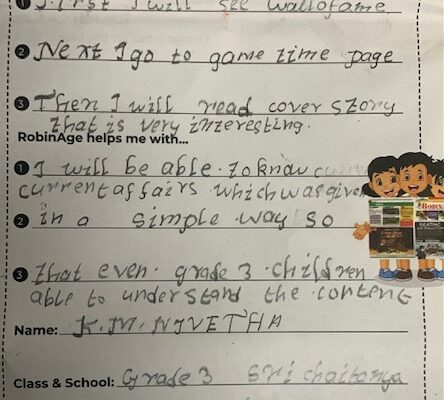 ❶ First I will see wallofame.
❷ Next I go to game time page
❸ Then I will read cover story
that is very interesting.
RobinAge helps me with...
❶ I will be able to know
current affairs which was given
❷ in a simple way so
❸ that even grade 3 children
able to understand the content
Name: K.M. NIVETHA
Class & School: Grade 3 Sri chaitanya
ROBIN